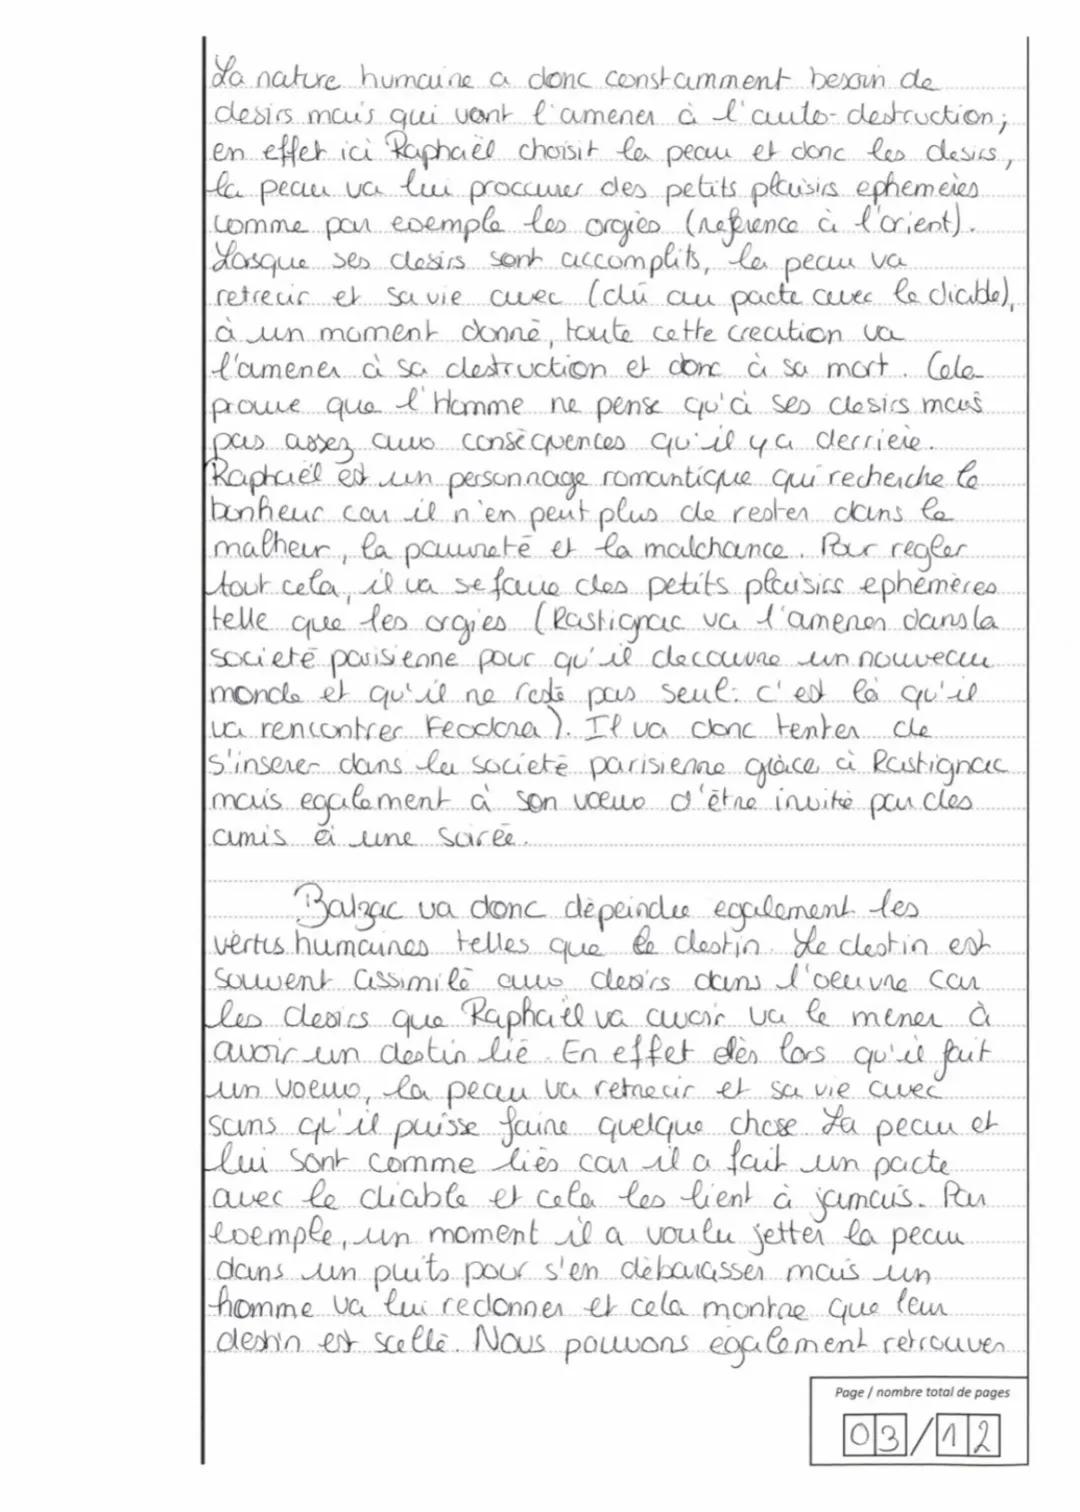 La nature humaine a donc constamment besoin de
desirs mais qui vont l'amener à l'auto-destruction;
en effet ici Raphaël choisit la peau et donc les desirs,
la peau va lui proccurer des petits plaisirs ephemères
comme par exemple les orgies (reference à l'orient).
Lorsque ses desirs sont accomplits, la peau va
retrecir et sa vie avec (dû au pacte avec le diable),
à un moment donné, toute cette creation va
l'amener à sa destruction et donc à sa mort. Cela
prouve que l'Homme ne pense qu'à ses desirs mais
pas assez aux conséquences qu'il y a derriere.
Raphaël est un personnage romantique qui recherche le
bonheur car il n'en peut plus de rester dans le
malheur, la pauvreté et la malchance. Pour regler
tout cela, il va se faire des petits plaisirs ephemères
telle que les orgies (Rastignac va l'amener dans la
societé parisienne pour qu'il decouvre un nouveau
monde et qu'il ne reste pas seul: c'est là qu'il
va rencontrer Feodora). Il va donc tenter de
s'inserer dans la societé parisienne grâce à Rastignac
mais egalement à son voeux d'être invité par des
amis à une soirée.
Balzac va donc dépeindre egalement les
vértus humaines telles que le destin. Le destin est
souvent assimilé aux desirs dans l'oeuvre car
les desirs que Raphaël va avoir va le mener à
avoir un destin lié. En effet dès lors qu'il fait
un voeux, la peau va retrecir et sa vie avec
sans qu'il puisse faire quelque chose. La peau et
lui sont comme liés car il a fait un pacte
avec le diable et cela les lient à jamais. Par
exemple, un moment il a voulu jetter la peau
dans un puits pour s'en débarasser mais un
homme va lui redonner et cela montre que leur
destin est scellé. Nous pouvons egalement retrouver
Page / nombre total de pages
03/12